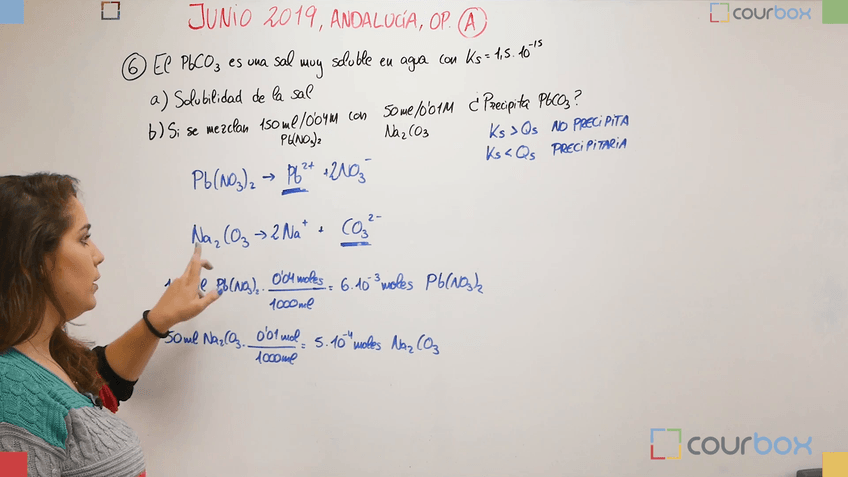 JUNIO 2019, ANDALUCÍA, OP. A
courbox
6 El PbCO₃ es una sal muy soluble en agua con Ks = 1,5.10⁻¹⁵
a) Solubilidad de la sal
b) Si se mezclan 150ml/0'04M con 50ml/0'01M ¿Precipita PbCO₃?
Pb(NO₃)₂ Na₂CO₃
Ks > Qs NO PRECIPITA
Ks < Qs PRECIPITARIA
Pb(NO₃)₂ → Pb²⁺ + 2NO₃⁻
Na₂CO₃ → 2Na⁺ + CO₃²⁻
ml Pb(NO₃)₂ · 0'04 moles / 1000ml = 6.10⁻³ moles Pb(NO₃)₂
50ml Na₂CO₃ · 0'01 mol / 1000ml = 5.10⁻⁴ moles Na₂CO₃
courbox